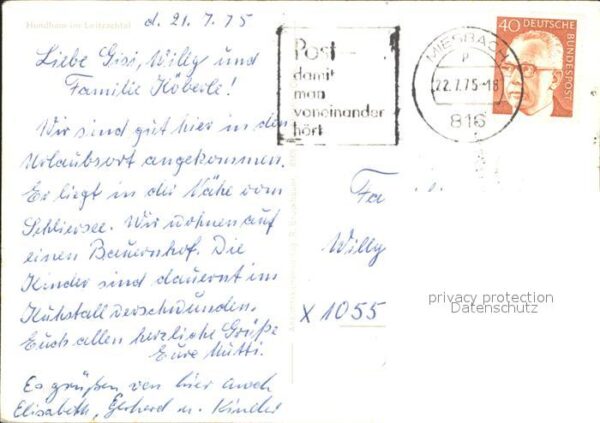 Hundham im Leitzachtal
d. 21.7.75
Liebe Gisi, Willy und
Familie Köberle!
Wir sind gut hier in den
Urlaubsort angekommen.
Er liegt in der Nähe vom
Schliersee. Wir wohnen auf
einen Bauernhof. Die
Kinder sind dauernt im
Kuhstall verschwunden.
Euch allen herzliche Grüße
Eure Mutti.
Es grüßen von hier auch
Elisabeth, Gerhard u. Kinder
Post-
damit
man
voneinander
hört
MIESBACH
P
22.7.75-18
816
40 DEUTSCHE
BUNDESPOST
Fa
Willy
x 1055
privacy protection
Datenschutz